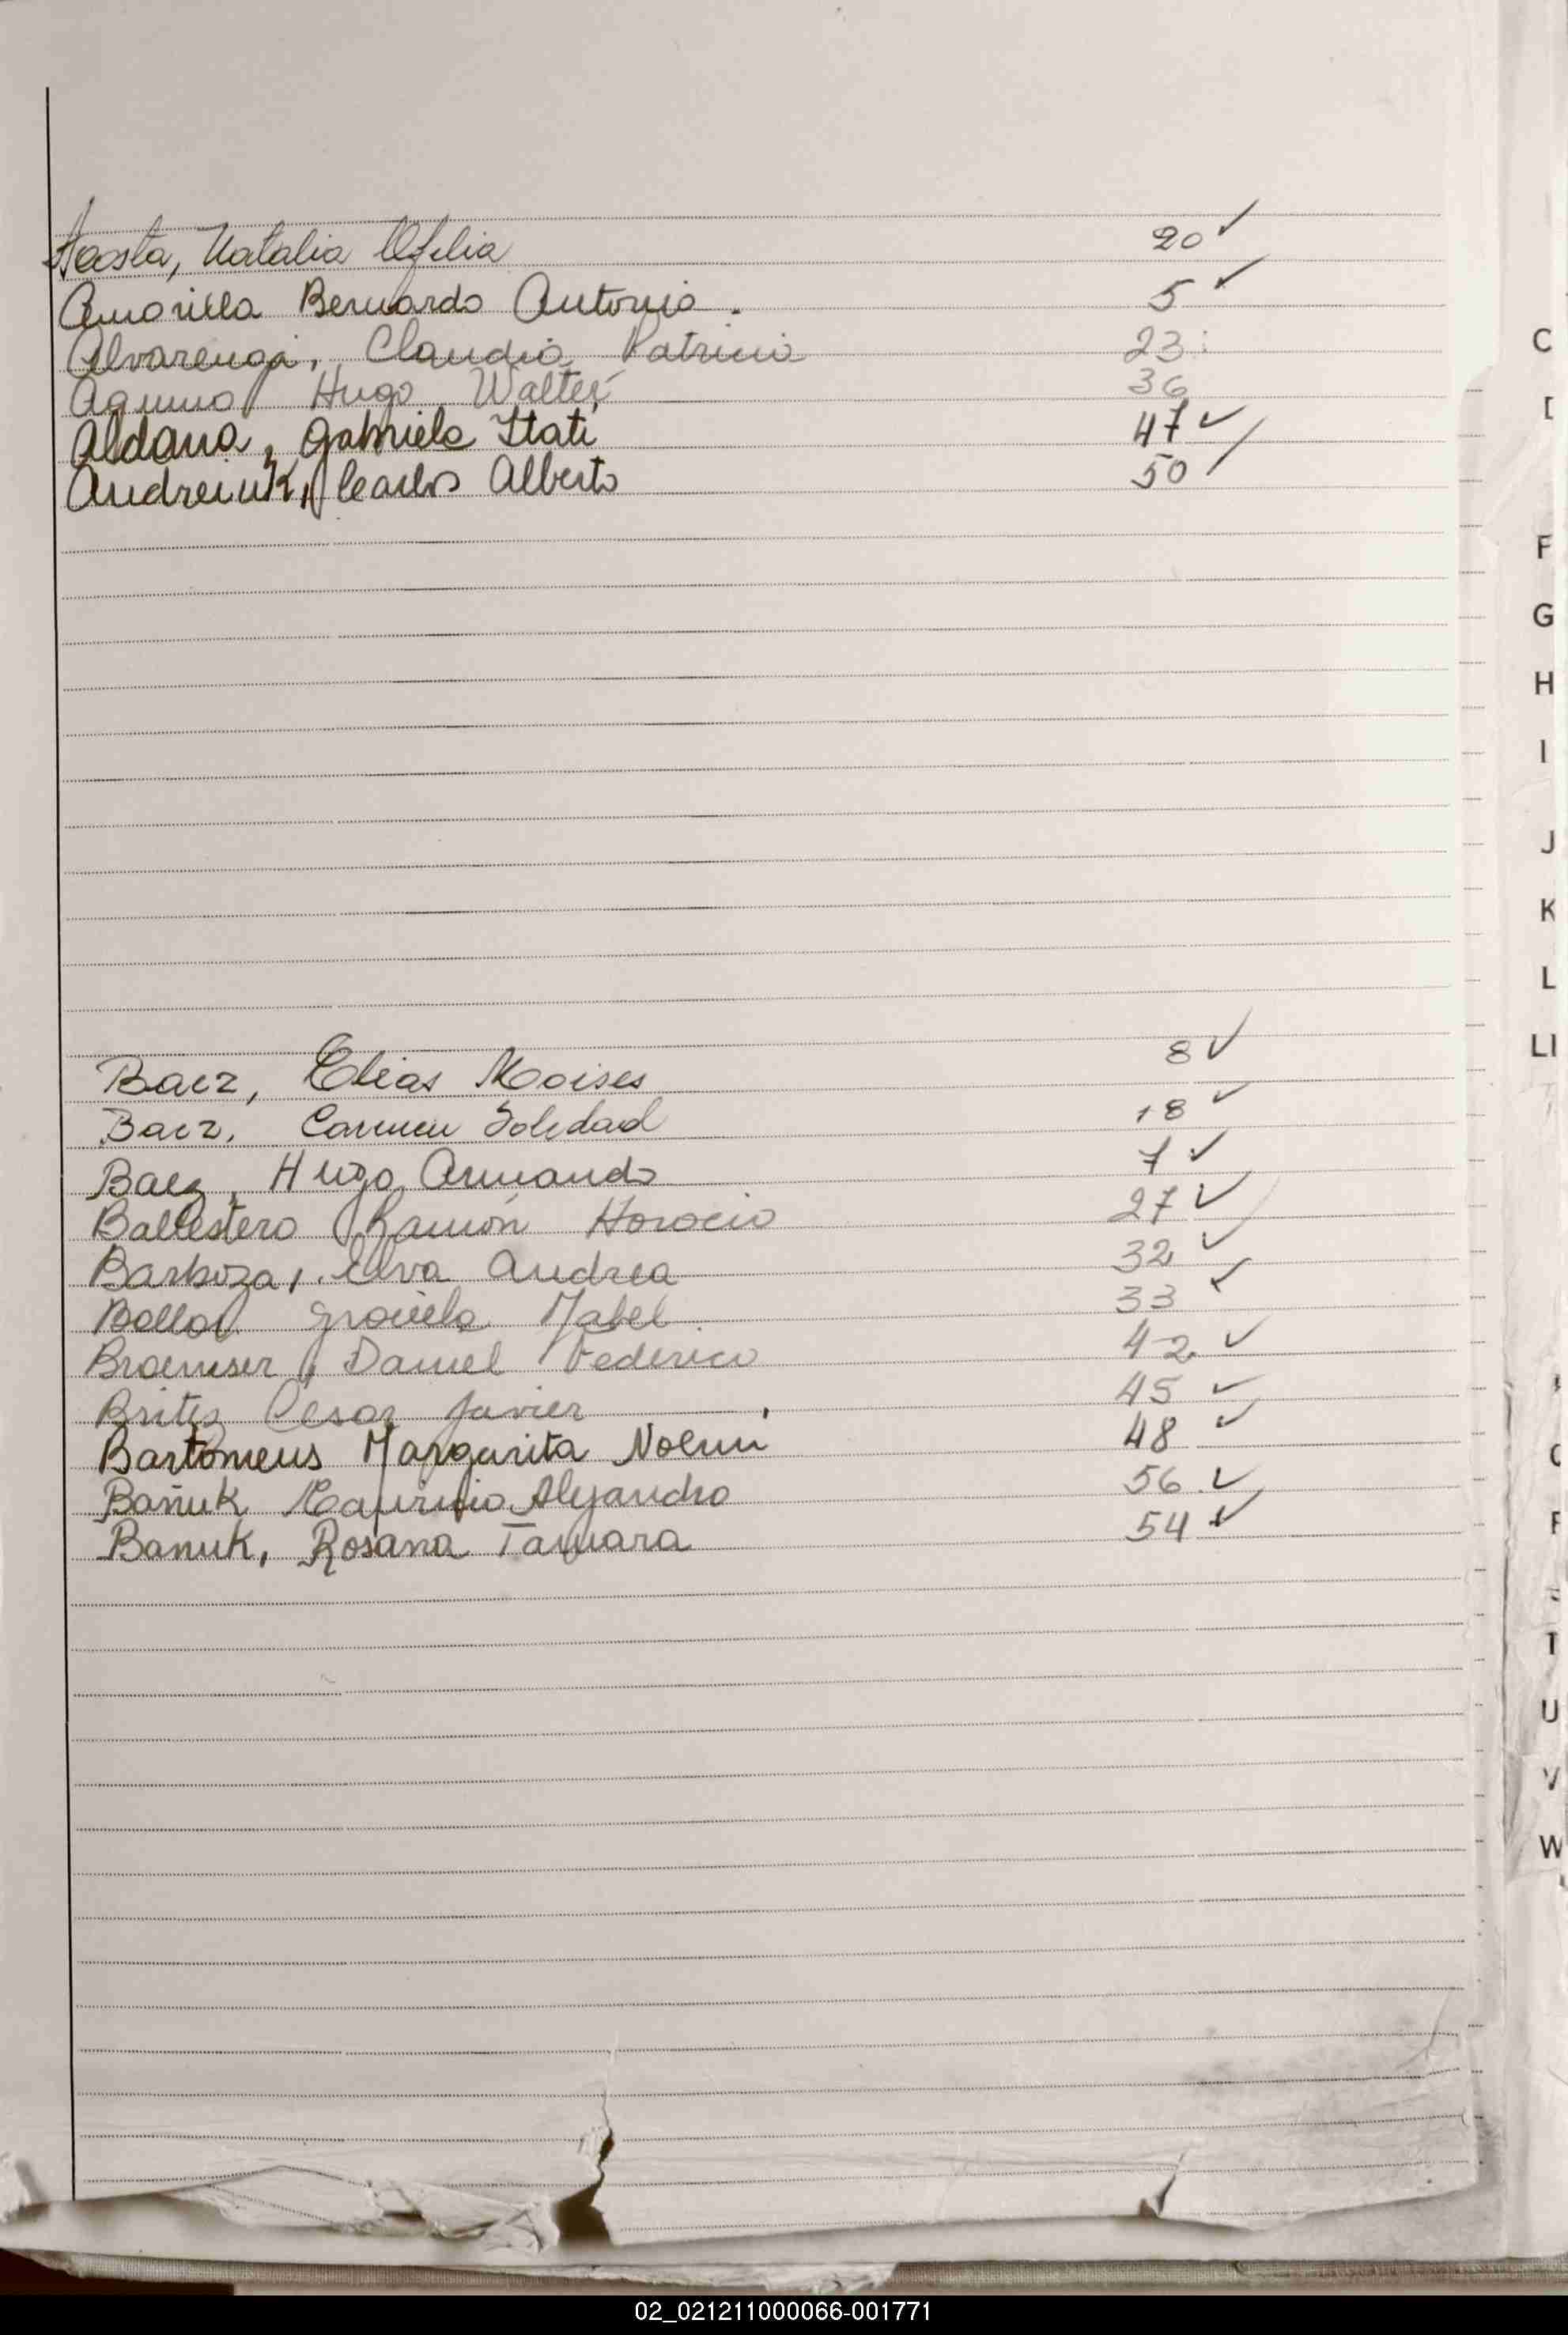 Acosta, Natalia Ofelia 20 ✓
Amarilla Bernardo Antonio. 5 ✓
Alvarenga, Claudia Patricia 23
Aquino Hugo Walter 36
Aldana, Gabriela Itati 47 ✓
Andreiuk, Carlos Alberto 50 ✓
Baez, Elias Moises 8 ✓
Baez, Carmen Soledad 18 ✓
Baez, Hugo Armando 7 ✓
Ballestero Ramón Horacio 27 ✓
Barboza, Elva Andrea 32 ✓
Graciela Mabel 33 ✓
Daniel Federico 42 ✓
Britez Cesar Javier 45 ✓
Bartomeus Margarita Noemi 48 ✓
Bañuk Mauricio Alejandro 56 ✓
Banuk, Rosana Tamara 54 ✓
C
F
G
H
I
J
K
L
Ll
T
U
V
W
02_021211000066-001771